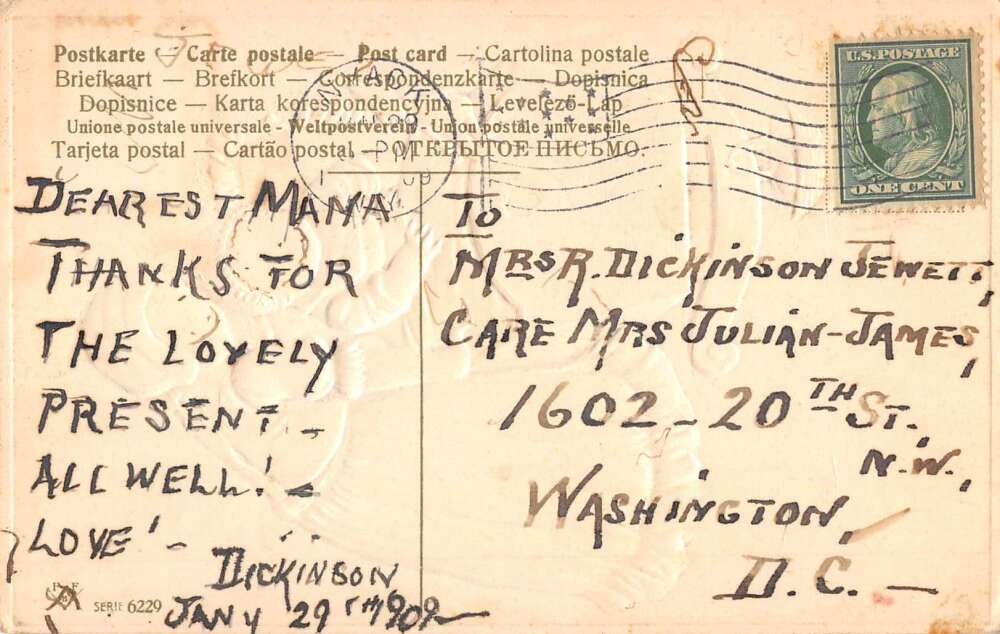 Postkarte — Carte postale — Post card — Cartolina postale
Briefkaart — Brefkort — Correspondenzkarte — Dopisnica
Dopisnice — Karta korespondencyjna — Levelező-Lap
Unione postale universale - Weltpostverein - Union postale universelle
Tarjeta postal — Cartão postal — ОТКРЫТОЕ ПИСЬМО.
U.S. POSTAGE
ONE CENT
DEAREST MAMA
THANKS FOR
THE LOVELY
PRESENT –
ALL WELL! –
LOVE! –
DICKINSON
JANY 29TH 1909–
TO
MRS R. DICKINSON JEWETT,
CARE MRS JULIAN-JAMES,
1602 – 20TH ST.,
N.W.,
WASHINGTON,
D.C. –
SERIE 6229